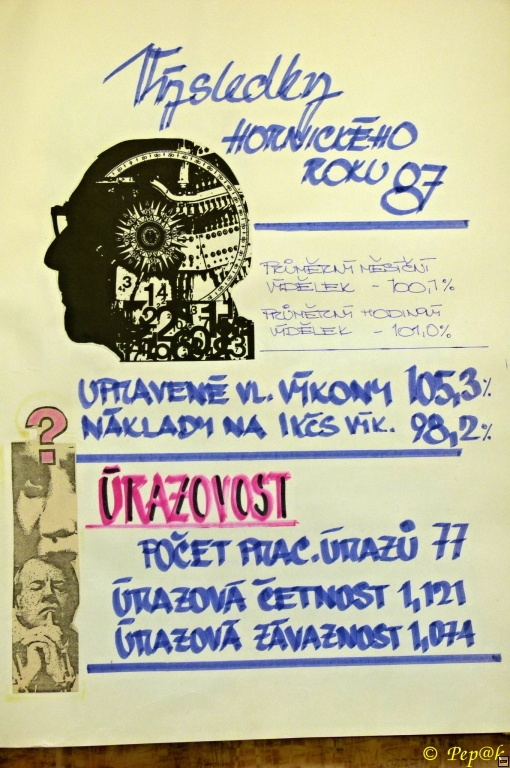 Výsledky
HORNICKÉHO
ROKU 87
PRŮMĚRNÝ MĚSÍČNÍ
VÝDĚLEK - 100,1%
PRŮMĚRNÝ HODINOVÝ
VÝDĚLEK - 101,0%
UPRAVENÉ VL. VÍKONY 105,3%
NÁKLADY NA 1 KČS VÍK. 98,2%
?
ÚRAZOVOST
POČET PRAC. ÚRAZŮ 77
ÚRAZOVÁ ČETNOST 1,121
ÚRAZOVÁ ZÁVAŽNOST 1,074
© Pep@k